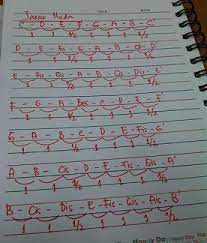 Tangga Nada
C - D - E - F - G - A - B - C'
1 1 ½ 1 1 1 ½
D - E - Fis - G - A - B - Cis - D'
1 1 ½ 1 1 1 ½
E - Fis - Gis - A - B - Cis - Dis - E'
1 1 ½ 1 1 1 ½
F - G - A - Bes - C - D - E - F'
1 1 ½ 1 1 1 ½
G - A - B - C - D - E - Fis - G'
1 1 ½ 1 1 1 ½
A - B - Cis - D - E - Fis - Gis - A'
1 1 ½ 1 1 1 ½
B - Cis - Dis - E - Fis - Gis - B'
1 1 ½ 1 1 1 ½